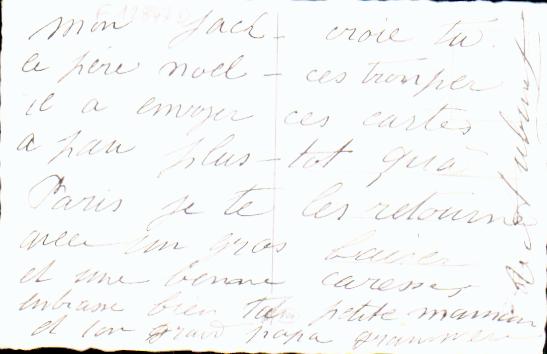 mon Jack - croie tu
le père noel - ces tromper
il a envoyer ces cartes
a pau plus-tot qu'à
Paris je te les retourne
avec un gros baiser
et une bonne caresses
enbrasse bien ta petite maman
et ton grand papa